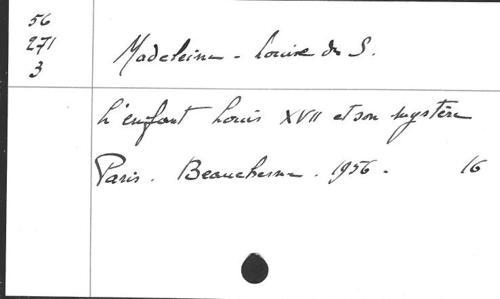 56
271
3
Madeleine - Louise de S.
L'enfant Louis XVII et son mystère
Paris. Beauchesne. 1956 - 16